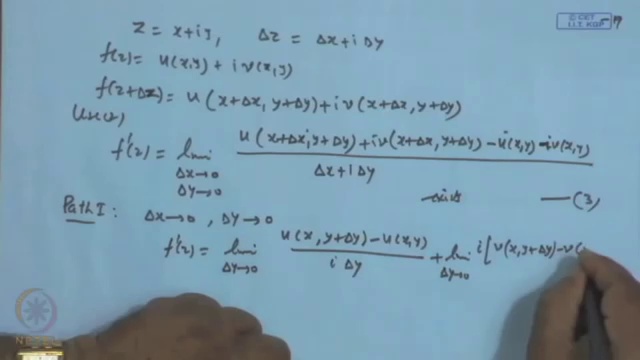 © CET
I.I.T. KGP
-7
z = x+iy, Δz = Δx+iΔy
f(z) = u(x,y) + i v(x,y)
f(z+Δz) = u(x+Δx, y+Δy) + i v(x+Δx, y+Δy)
f'(z) = lim Δx→0 Δy→0 u(x+Δx, y+Δy) + i v(x+Δx, y+Δy) - u(x,y) - i v(x,y) / Δx+iΔy
exists —(3)
Path I: Δx→0, Δy→0
f'(z) = lim Δy→0 u(x, y+Δy) - u(x,y) / iΔy + lim Δy→0 i[v(x, y+Δy) - v(